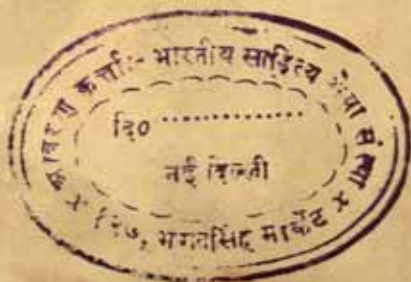 आवरण कर्त्ता:- भारतीय साहित्य सेवा संस्था
दि० ..................
नई दिल्ली
× १२७, भगतसिंह मार्केट ×